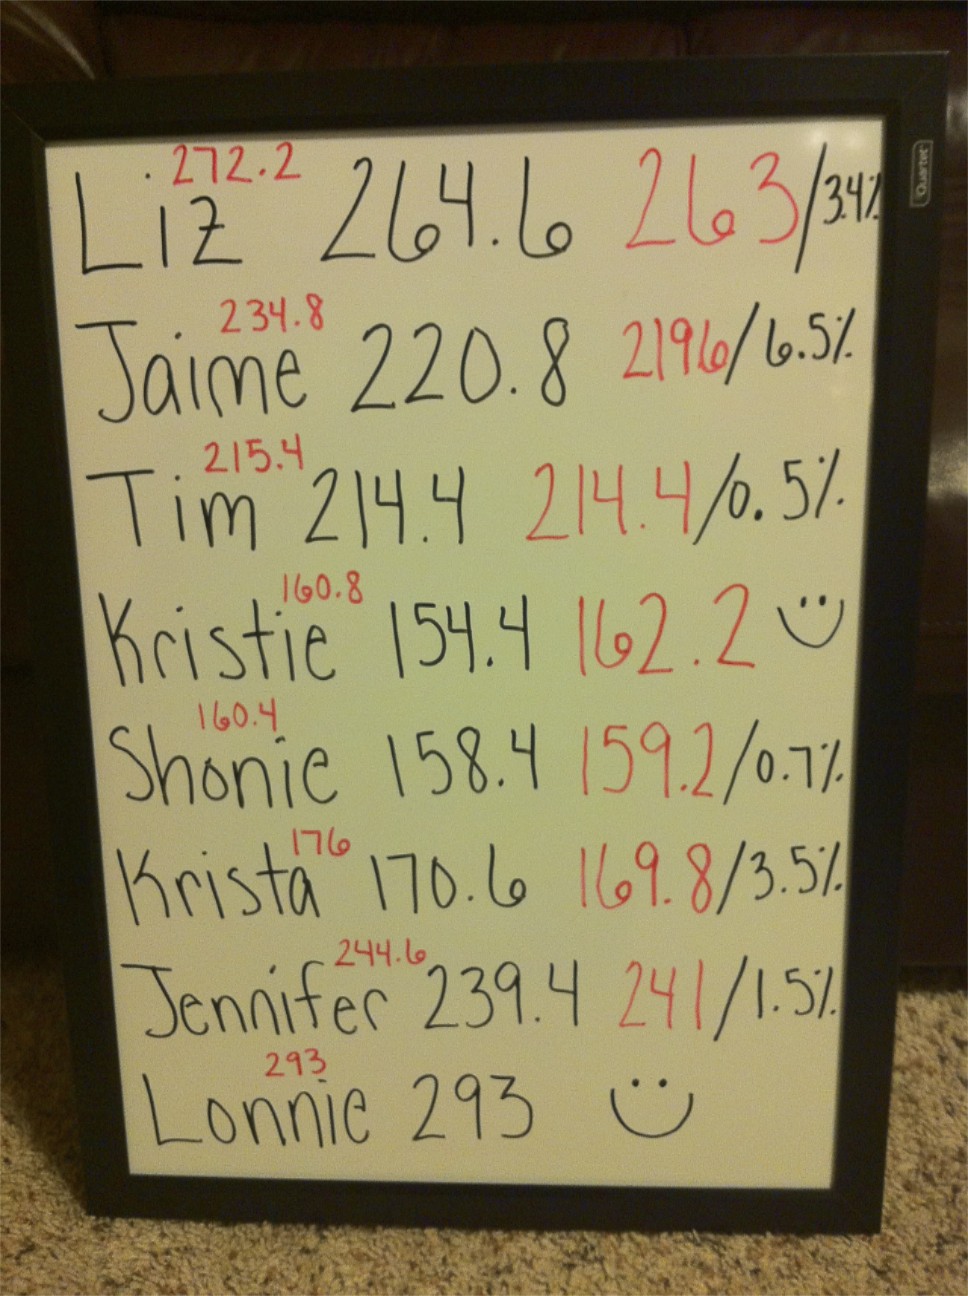 272.2
Liz 264.6 263/3.4%
234.8
Jaime 220.8 2196/6.5%
215.4
Tim 214.4 214.4/0.5%
160.8
Kristie 154.4 162.2
160.4
Shonie 158.4 159.2/0.7%
176
Krista 170.6 169.8/3.5%
244.6
Jennifer 239.4 241/1.5%
293
Lonnie 293
Quartet